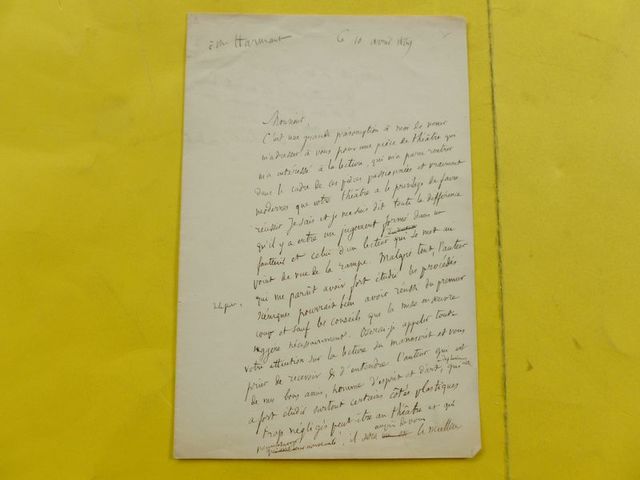 à Mr Harmant
Ce 10 avril 1869
Monsieur,
C'est une grande présomption à moi de venir
m'adresser à vous pour une pièce de théâtre qui
m'a intéressé à la lecture, qui m'a paru rentrer
dans le cadre de ces pièces passionnées et vraiment
modernes que votre théâtre a le privilège de faire
réussir. Je sais et je me suis dit toute la différence
qu'il y a entre un jugement formé dans un
fauteuil et celui d'un lecteur qui se met au
point de vue de la rampe. Malgré tout, l'auteur
qui me paraît avoir fort étudié les procédés
scéniques pourrait bien avoir réussi du premier
coup et sauf les conseils que la mise en œuvre
suggère nécessairement. Oserai-je appeler toute
votre attention sur la lecture du manuscrit et vous
prier de recevoir & d'entendre l'auteur qui est
de mes bons amis, homme d'esprit et qui
a fort étudié surtout certains côtés plastiques
trop négligés peut-être au théâtre et qui
auprès de vous
il sera le meilleur